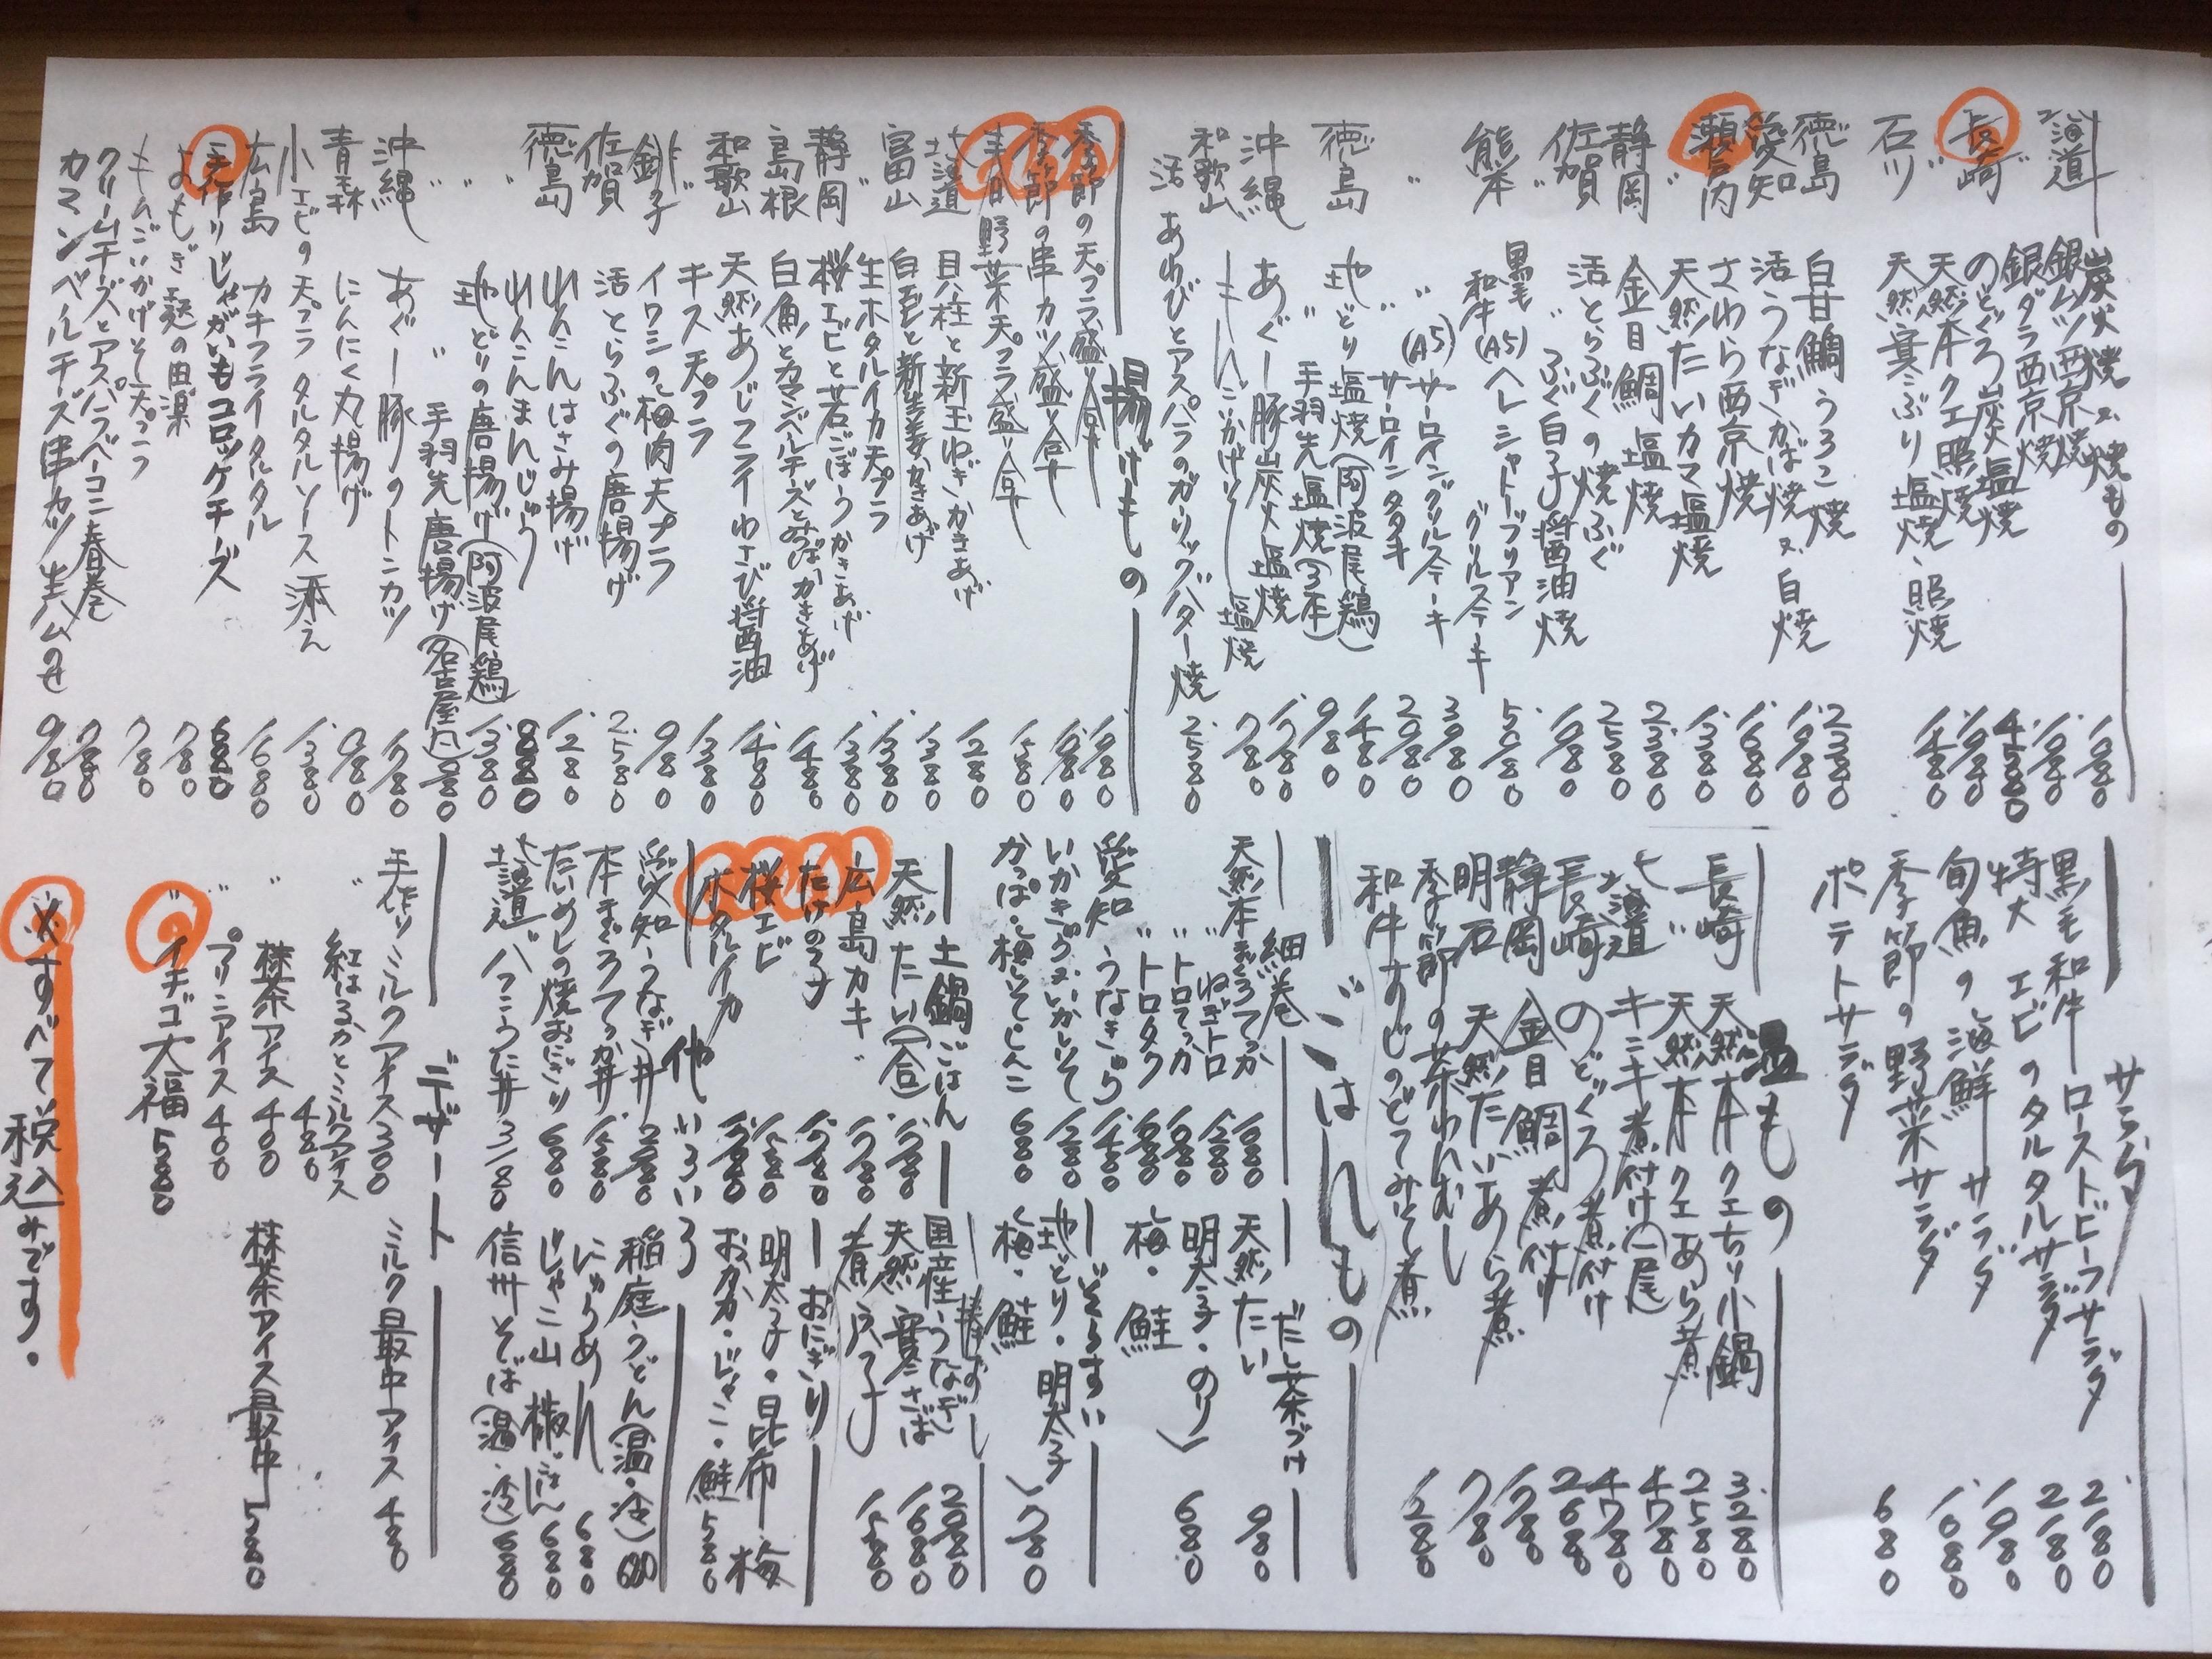 炭火焼 又 焼もの
北海道 銀ムツ西京焼 1980
〃 銀ダラ西京焼 1980
長崎 のどぐろ炭火塩焼 4580
〃 天然本クエ照焼 1980
石川 天然寒ぶり塩焼、照焼 1480
徳島 白甘鯛うろこ焼 2380
愛知 活うなぎかば焼 又 白焼
瀬戸内 さわら西京焼 1680
〃 天然たいカマ塩焼 1380
静岡 金目鯛塩焼 2380
佐賀 活とらふぐの焼ふぐ 2580
〃 〃 ふぐ白子醤油焼 1980
熊本 黒毛和牛(A5)ヘレシャトーブリアングリルステーキ
〃 〃 (A5)サーロイングリルステーキ 3980
〃 〃 サーロインタタキ 2980
徳島 地どり塩焼(阿波尾鶏) 1480
〃 〃 手羽先塩焼(3本) 980
沖縄 あぐー豚炭火塩焼 1780
和歌山 しんこいかげそ塩焼 780
活あわびとアスパラのガーリックバター焼 2580
揚げもの
季節の天プラ盛り合せ 1980
季節の串カツ盛り合せ 1980
春野菜天プラ盛り合せ 1580
北海道 貝柱と新玉ねぎかきあげ 1280
富山 白エビと新生姜かきあげ 1380
〃 生ホタルイカ天プラ 1380
静岡 桜エビと若ごぼうかきあげ 1380
島根 白魚とカマンベールチーズとおばかきあげ 1480
和歌山 天然あじフライわさび醤油 1480
〃 キス天プラ 1380
銚子 イワシの梅肉天プラ 980
佐賀 活とらふぐの唐揚げ 2580
徳島 れんこんはさみ揚げ 1280
〃 れんこんまんじゅう 880
〃 地どりの唐揚げ(阿波尾鶏) 1380
〃 〃 手羽先唐揚げ(名古屋風) 980
沖縄 あぐー豚のトンカツ 1780
青森 にんにく丸揚げ 980
小エビの天プラ タルタルソース添え 1380
広島 カキフライタルタル 1680
手作りじゃがいもコロッケチーズ 680
よもぎ麩の田楽 780
もんごいかげそ天プラ 780
クリームチーズとアスパラベーコン春巻 780
カマンベールチーズ串カツ 生ハムのせ 980
サラダ
黒毛和牛 ローストビーフサラダ 2180
特大 エビのタルタルサラダ 2180
旬魚の海鮮サラダ 1980
季節の野菜サラダ 1080
ポテトサラダ 680
温もの
長崎 天然本クエちり小鍋 3280
〃 天然本クエあら煮 2580
北海道 キンキ煮付け(一尾) 4780
長崎 のどぐろ煮付け 4780
静岡 金目鯛煮付け 2680
明石 天然たいあら煮 1780
季節の茶わんむし 780
和牛すじのどてみそ煮 1280
ごはんもの
細巻
天然本まぐろてっか 1680
〃 ねぎトロ 1280
〃 トロてっか 1980
〃 トロタク 1680
愛知 うなきゅう 1480
いかきゅう・いかしそ 1280
かっぱ・梅しそ・しんこ 680
だし茶づけ
天然たい 980
明太子・のり
梅・鮭 680
ぞうすい
地どり・明太子
梅・鮭 780
土鍋ごはん
天然たい(一合) 1780
広島カキ 1780
たけの子 1580
桜エビ 1580
ホタルイカ 1580
棒ずし
国産うなぎ 2980
天然寒さば 1680
煮穴子 1580
おにぎり
明太子・昆布・梅
おカカ・じゃこ・鮭 580
他いろいろ
愛知うなぎ丼 2980
本まぐろてっか丼 1580
たいめしの焼おにぎり 680
北海道バフンうに丼 3180
稲庭うどん(温・冷) 680
にゅうめん 680
じゃこ山椒ごはん 680
信州そば(温・冷) 680
デザート
手作りミルクアイス 300
〃 紅はるかとミルクアイス 480
〃 抹茶アイス 400
〃 プリンアイス 400
〃 イチゴ大福 580
ミルク最中アイス 480
抹茶アイス最中 580
※すべて税込みです。